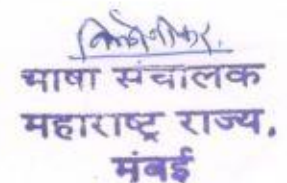 भाषा संचालक
महाराष्ट्र राज्य.
मुंबई